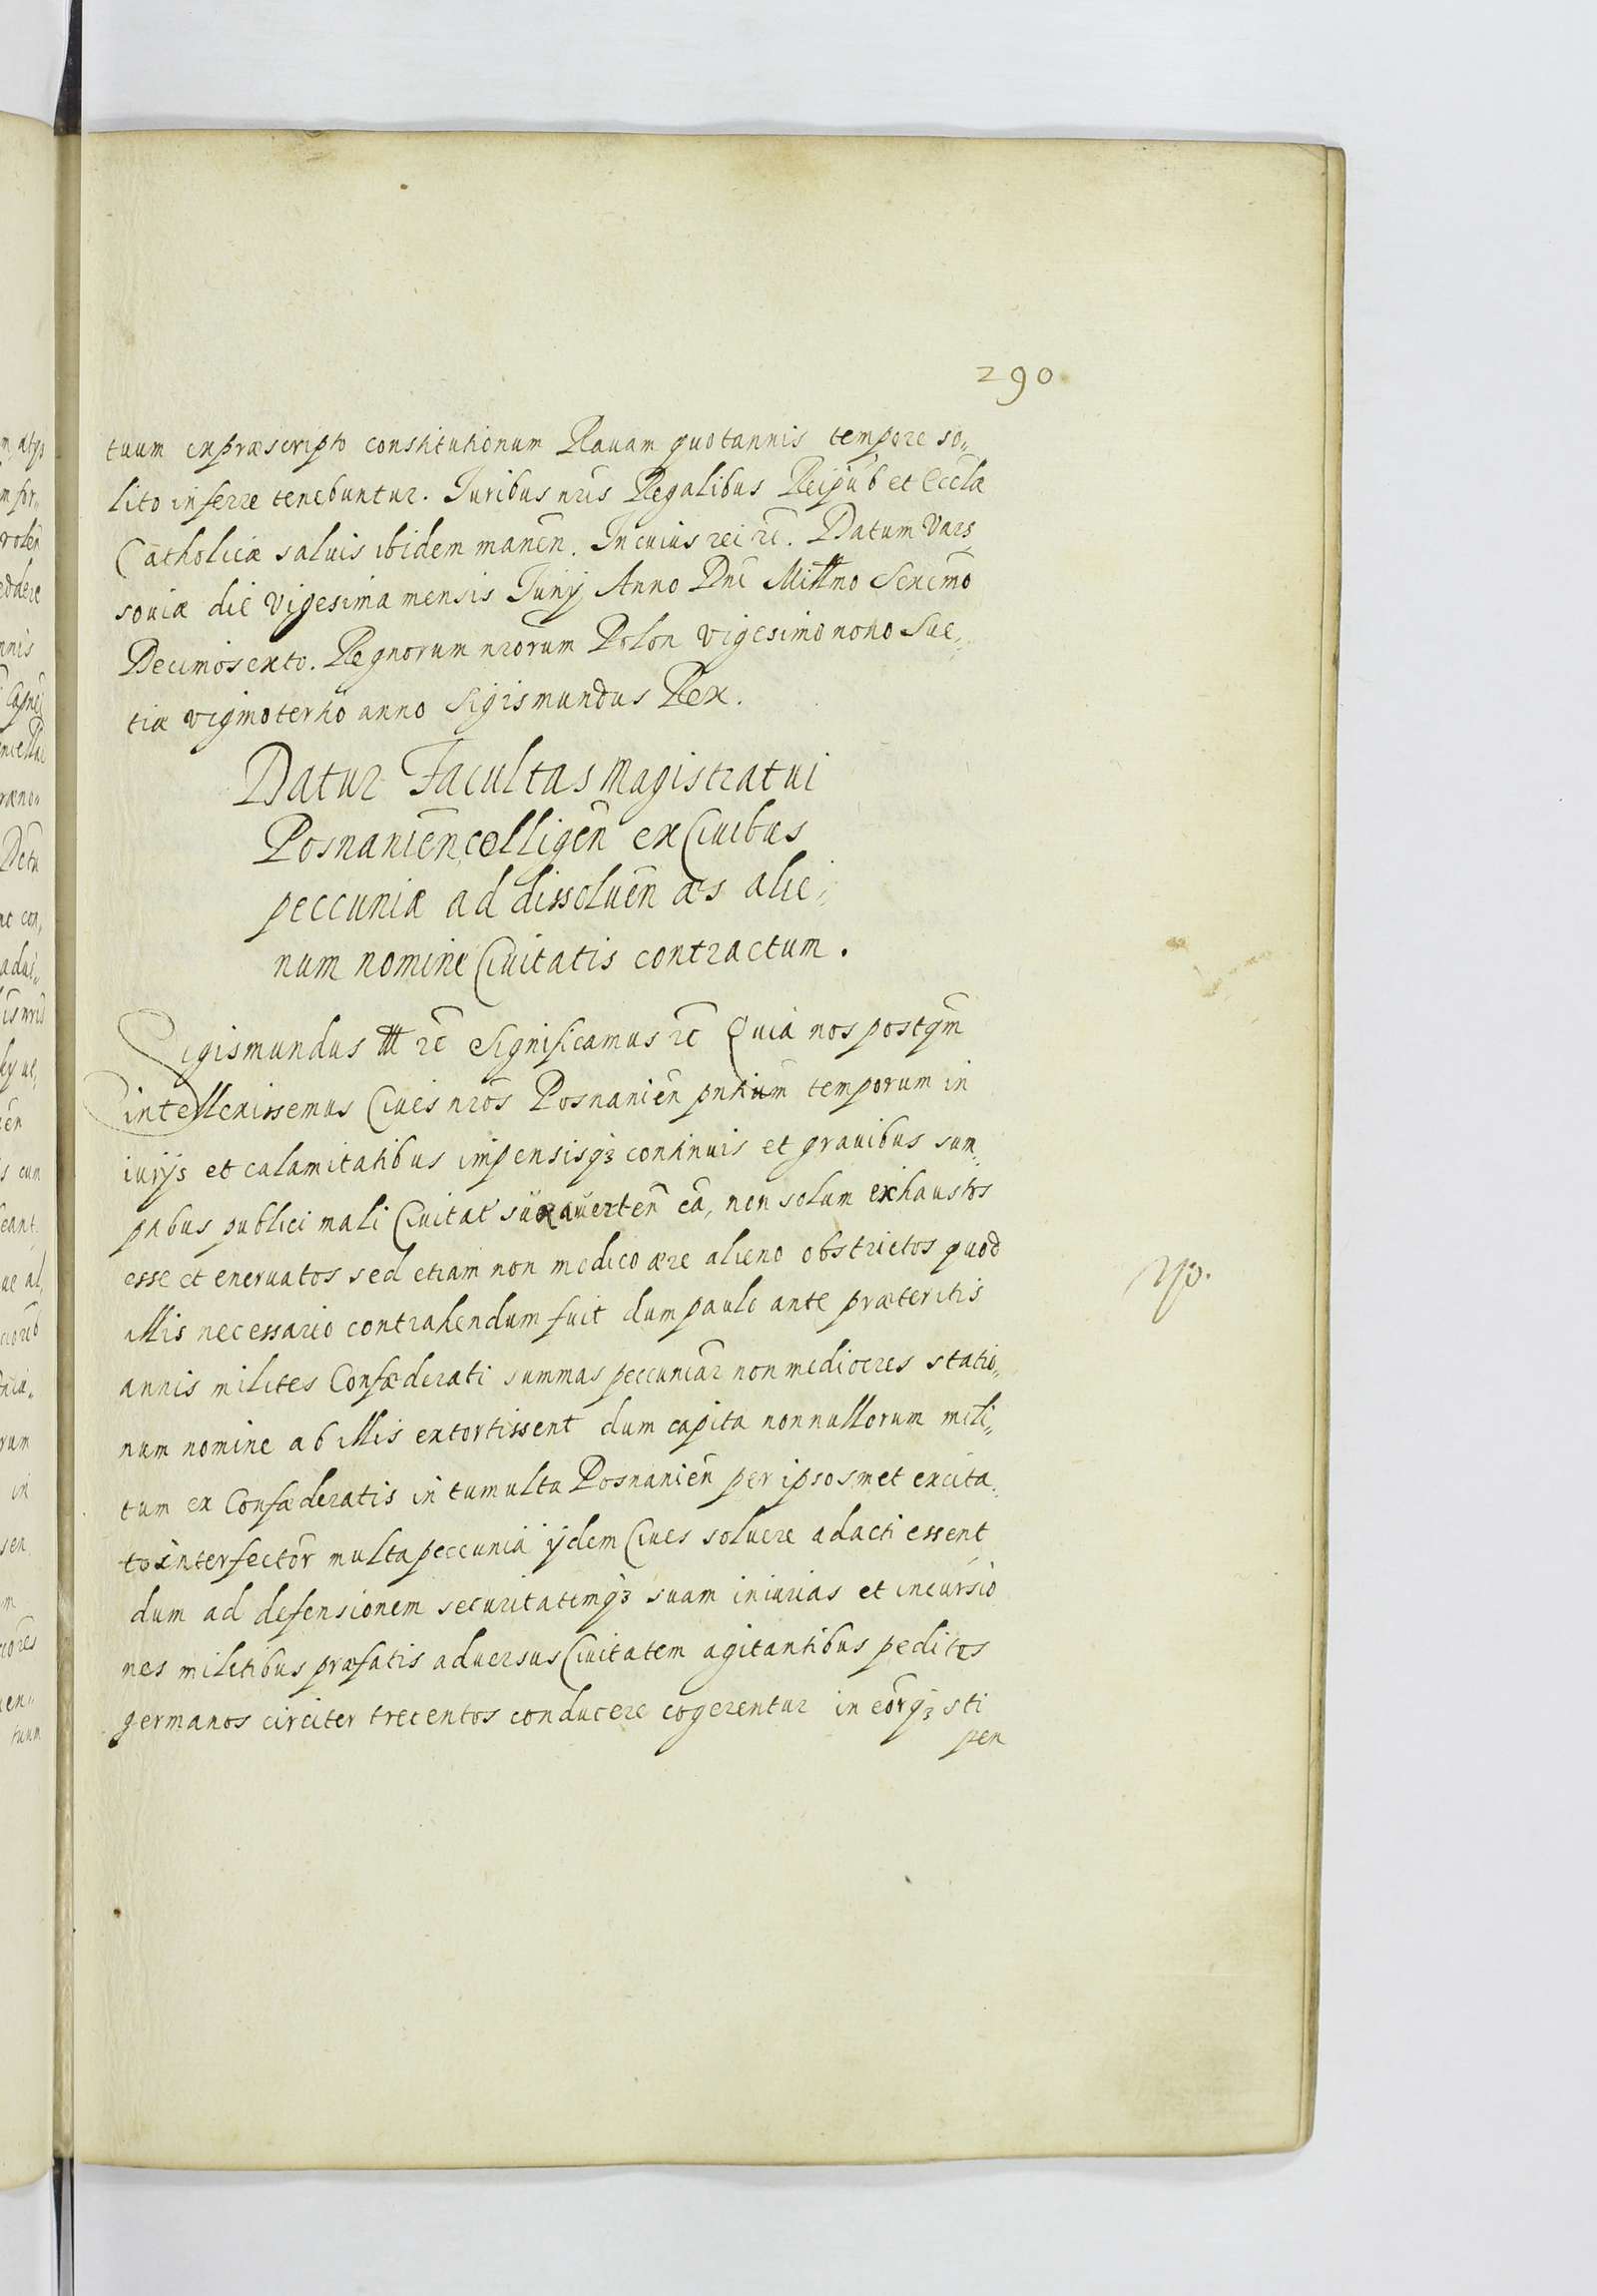 290
tuum ex præscripto constitutionum Rauam quotannis tempore so„
lito inferre tenebuntur. Iuribus nr̃is Regalibus Reipub et Eccl̃æ
Catholicæ saluis ibidem maneñ. In cuius rei ꝛc̃. Datum Vars„
souiæ die vigesima mensis Iunij Anno Dnĩ Millmo Sexcm̃o
Decimosexto. Regnorum nrorum Polon vigesimo nono Sue„
tiæ vigmotertio anno Sigismundus Rex.
Datur Facultas Magistratui
Posnanieñ colligeñ ex Ciuibus
peccuniæ ad dissolueñ æs alie„
num nomine Ciuitatis contractum.
Sigismundus III ꝛc̃ Significamus ꝛc̃ Quia nos postqm̃
intellexissemus Ciues nrõs Posnanieñ pntium temporum in
iurijs et calamitatibus impensisqꝫ continuis et grauibus sum„
ptibus publici mali Ciuitat̃ suæ auerteñ cã, non solum exhaustos
esse et eneruatos sed etiam non modico ære alieno obstrictos quod
illis necessario contrahendum fuit dum paulo ante præteritis
annis milites Confæderati summas peccuniar̃ non mediocres statio„
num nomine ab illis extortissent dum capita nonnullorum mili„
tum ex Confæderatis in tumultu Posnanieñ per ipsosmet excita„
to interfector̃ multa peccunia ijdem Ciues soluere adacti essent
dum ad defensionem securitatemqꝫ suam iniurias et incursio
nes militibus præfatis aduersus Ciuitatem agitantibus pedites
germanos circiter trecentos conducere cogerentur in eorqꝫ sti
pen